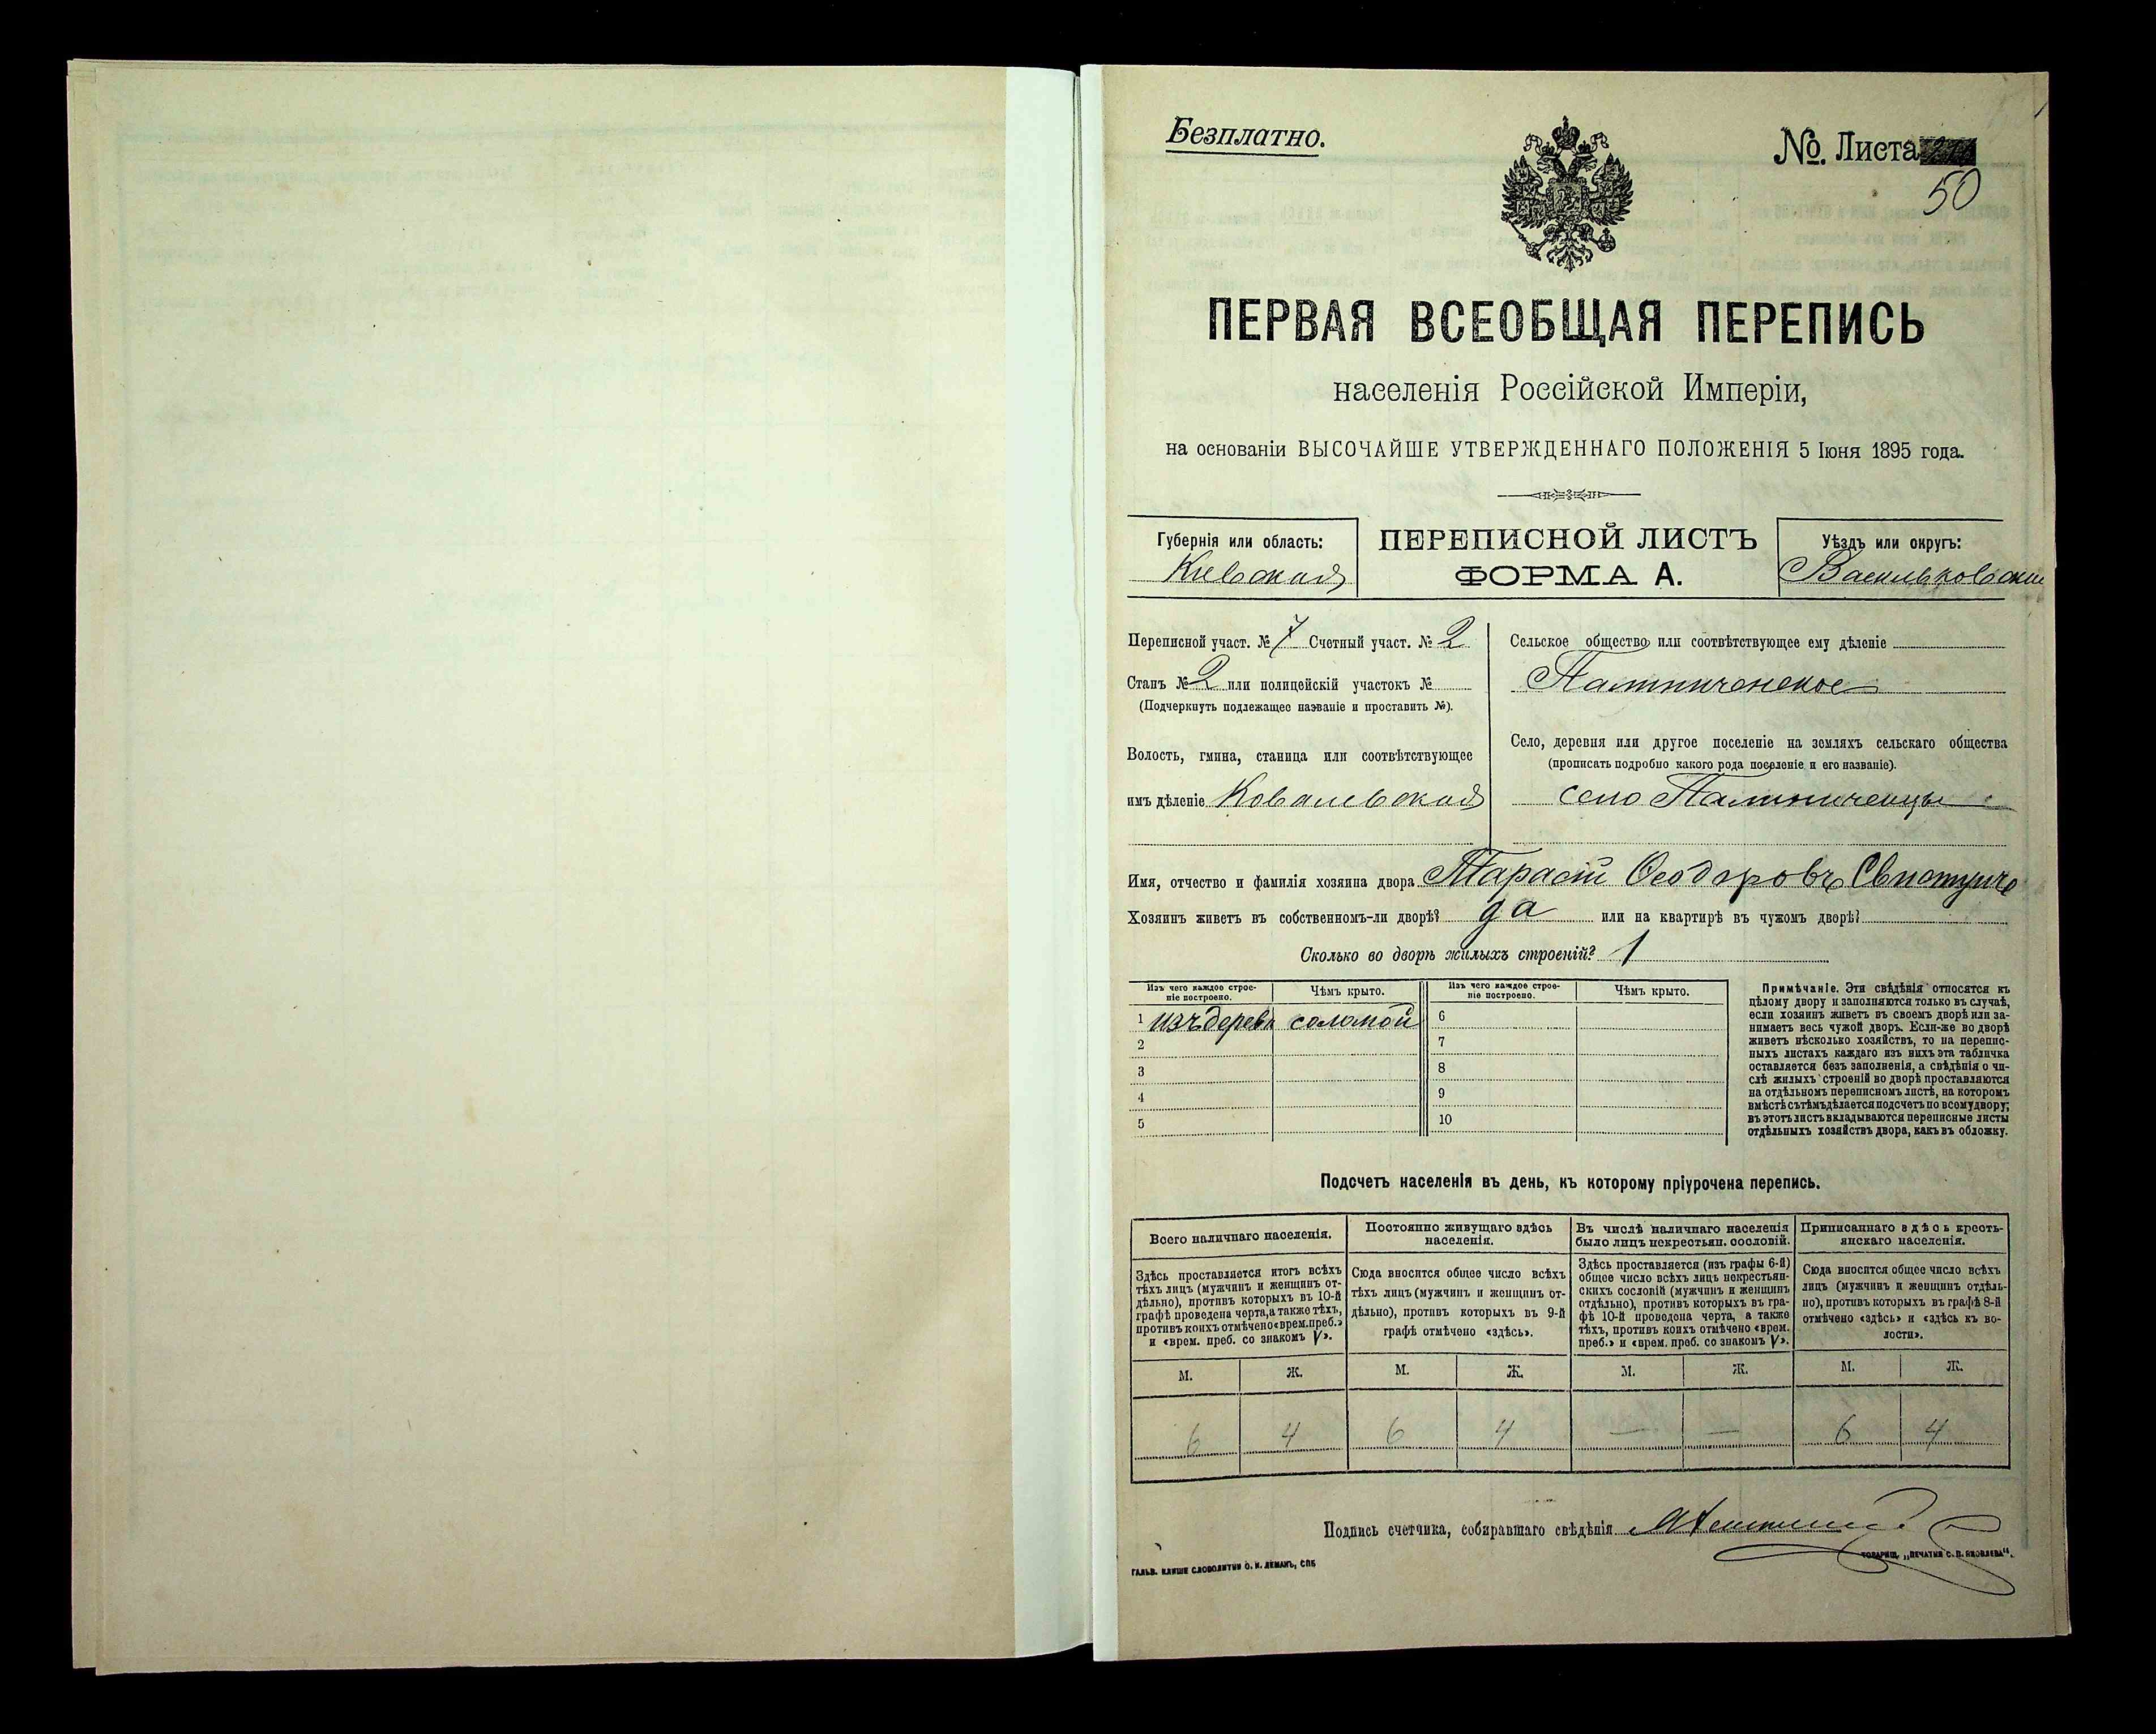 Безплатно.
№. Листа
50
ПЕРВАЯ ВСЕОБЩАЯ ПЕРЕПИСЬ
населенія Россійской Имперіи,
на основаніи ВЫСОЧАЙШЕ УТВЕРЖДЕННАГО ПОЛОЖЕНІЯ 5 Іюня 1895 года.
Губернія или область:
Киевская
ПЕРЕПИСНОЙ ЛИСТЪ
ФОРМА А.
Уѣздъ или округъ:
Васильковский
Переписной участ. № 7 Счетный участ. № 2
Станъ № 2 или полицейскій участокъ №
(Подчеркнуть подлежащее названіе и проставить №).
Волость, гмина, станица или соотвѣтствующее
имъ дѣленіе Ковалевская
Сельское общество или соотвѣтствующее ему дѣленіе
Палиниченское
Село, деревня или другое поселеніе на земляхъ сельскаго общества
(прописать подробно какого рода поселеніе и его названіе).
село Палиниченцы
Имя, отчество и фамилія хозяина двора Тарасій Ѳеодоровъ Свистунъ
Хозяинъ живетъ въ собственномъ-ли дворѣ? да или на квартирѣ въ чужомъ дворѣ?
Сколько во дворѣ жилыхъ строеній? 1
Изъ чего каждое строе-
ніе построено.
Чѣмъ крыто.
Изъ чего каждое строе-
ніе построено.
Чѣмъ крыто.
1 изъ дерева соломой 6
2 7
3 8
4 9
5 10
Примѣчаніе. Эти свѣдѣнія относятся къ
цѣлому двору и заполняются только въ случаѣ,
если хозяинъ живетъ въ своемъ дворѣ или за-
нимаетъ весь чужой дворъ. Если-же во дворѣ
живетъ нѣсколько хозяйствъ, то на перепис-
ныхъ листахъ каждаго изъ нихъ эта табличка
оставляется безъ заполненія, а свѣдѣнія о чи-
слѣ жилыхъ строеній во дворѣ проставляются
на отдѣльномъ переписномъ листѣ, на которомъ
вмѣстѣ съ тѣмъ дѣлается подсчетъ по всему двору;
въ этотъ листъ вкладываются переписные листы
отдѣльныхъ хозяйствъ двора, какъ въ обложку.
Подсчетъ населенія въ день, къ которому пріурочена перепись.
Всего наличнаго населенія.
Постоянно живущаго здѣсь
населенія.
Въ числѣ наличнаго населенія
было лицъ некрестьян. сословій.
Приписаннаго здѣсь кресть-
янскаго населенія.
Здѣсь проставляется итогъ всѣхъ
тѣхъ лицъ (мужчинъ и женщинъ от-
дѣльно), противъ которыхъ въ 10-й
графѣ проведена черта, а также тѣхъ,
противъ коихъ отмѣчено «врем. преб.»
и «врем. преб. со знакомъ V».
Сюда вносится общее число всѣхъ
тѣхъ лицъ (мужчинъ и женщинъ от-
дѣльно), противъ которыхъ въ 9-й
графѣ отмѣчено «здѣсь».
Здѣсь проставляется (изъ графы 6-й)
общее число всѣхъ лицъ некрестьян-
скихъ сословій (мужчинъ и женщинъ
отдѣльно), противъ которыхъ въ гра-
фѣ 10-й проведена черта, а также
тѣхъ, противъ коихъ отмѣчено «врем.
преб.» и «врем. преб. со знакомъ V».
Сюда вносится общее число всѣхъ
лицъ (мужчинъ и женщинъ отдѣль-
но), противъ которыхъ въ графѣ 8-й
отмѣчено «здѣсь» и «здѣсь къ во-
лости».
М. Ж. М. Ж. М. Ж. М. Ж.
6 4 6 4 — — 6 4
Подпись счетчика, собиравшаго свѣдѣнія
ГАЛЬВ. КЛИШЕ СЛОВОЛИТНИ О. И. ЛЕМАНЪ, СПБ
ТОВАРИЩ. „ПЕЧАТНЯ С. П. ЯКОВЛЕВА".